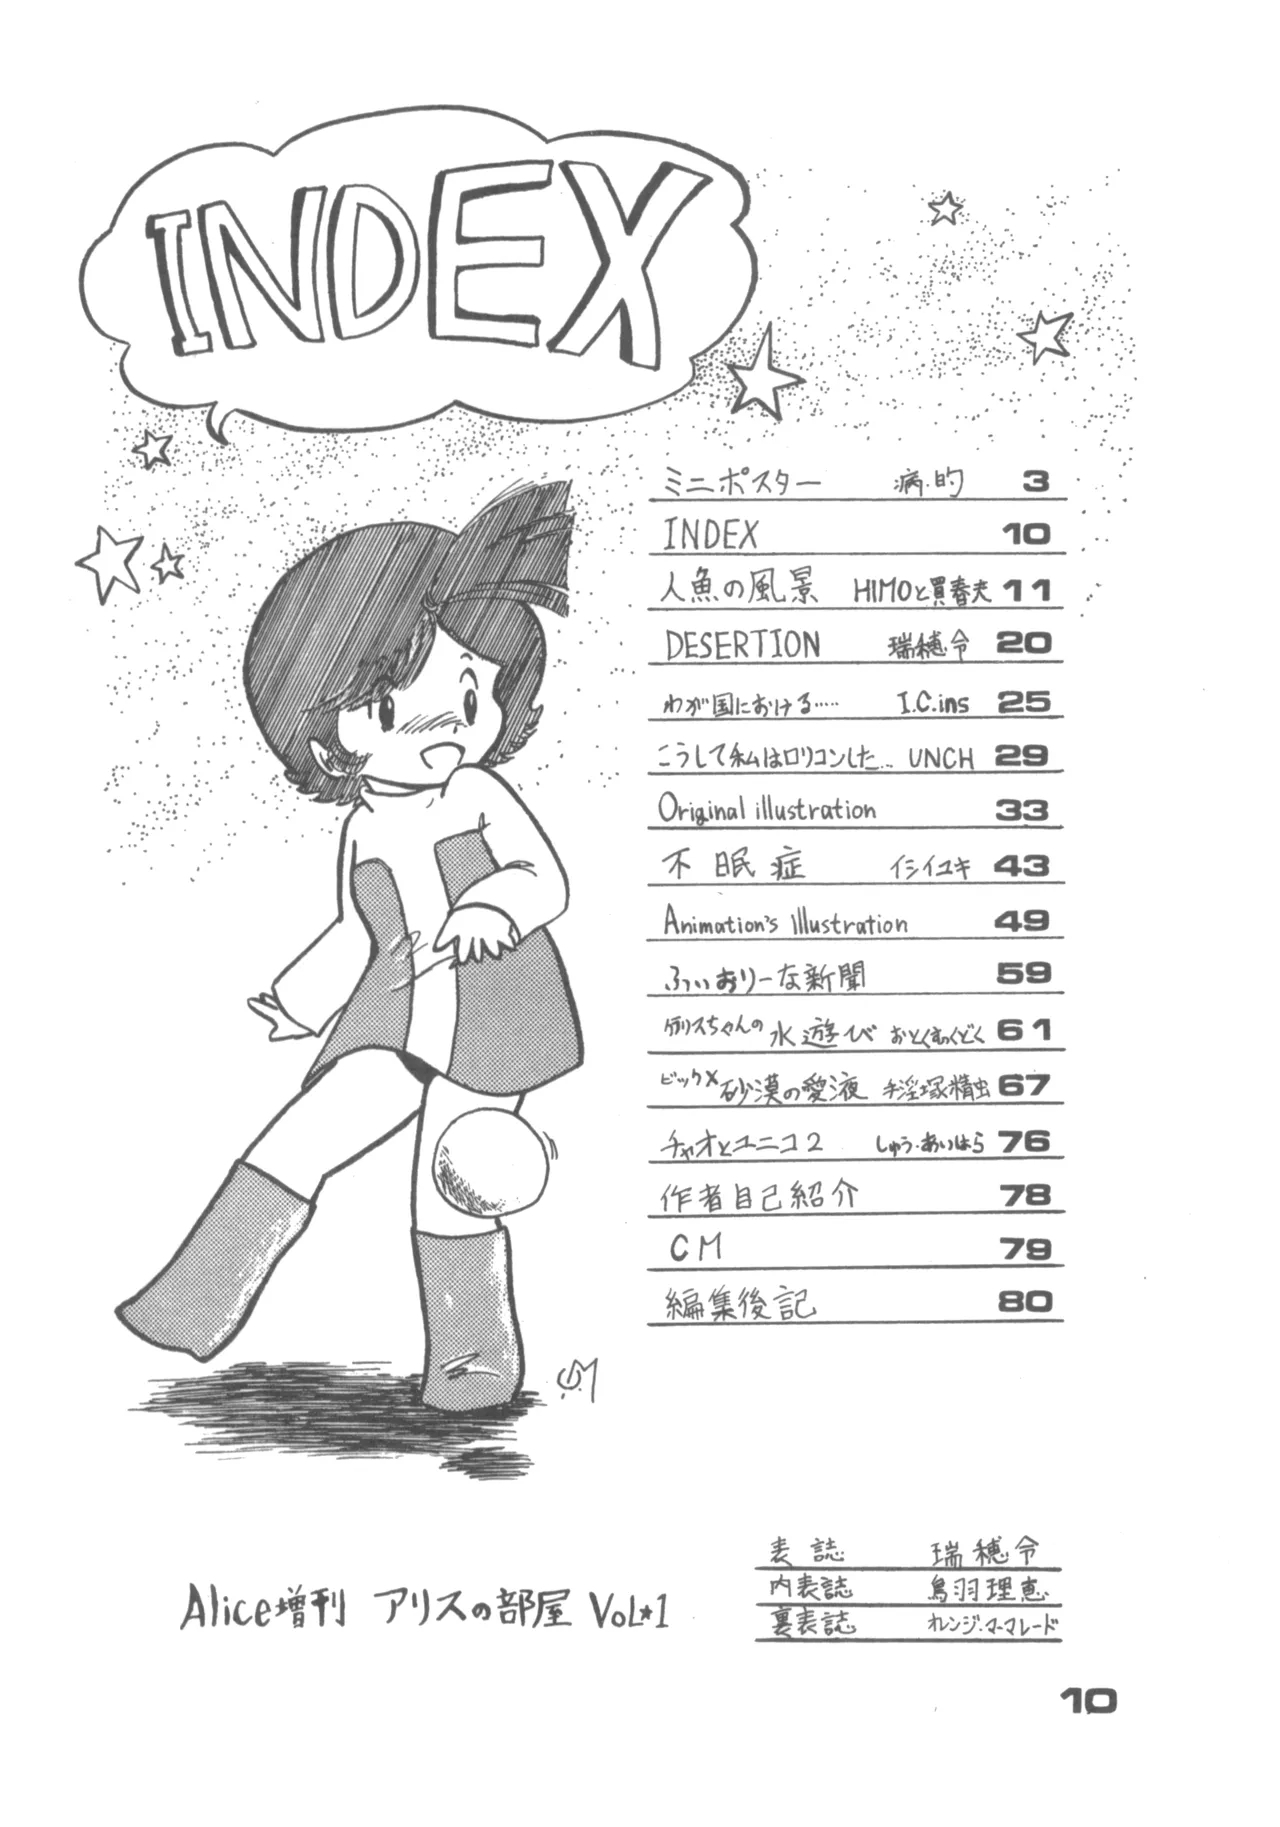 INDEX
ミニポスター 病・的 3
INDEX 10
人魚の風景 HIMOと買春夫 11
DESERTION 瑞穂令 20
わが国における…… I.C.ins 25
こうして私はロリコンした… UNCH 29
Original illustration 33
不眠症 イシイユキ 43
Animation's Illustration 49
ふぃおりーな新聞 59
水遊び おとくむくどく 61
ビックX 砂漠の愛液 手淫塚精虫 67
チャオとユニコ2 しゅう・あいはら 76
作者自己紹介 78
CM 79
編集後記 80
Alice増刊 アリスの部屋 VOL★1
表誌 瑞穂令
内表誌 鳥羽理恵
裏表誌 オレンジ・マーマレード
10